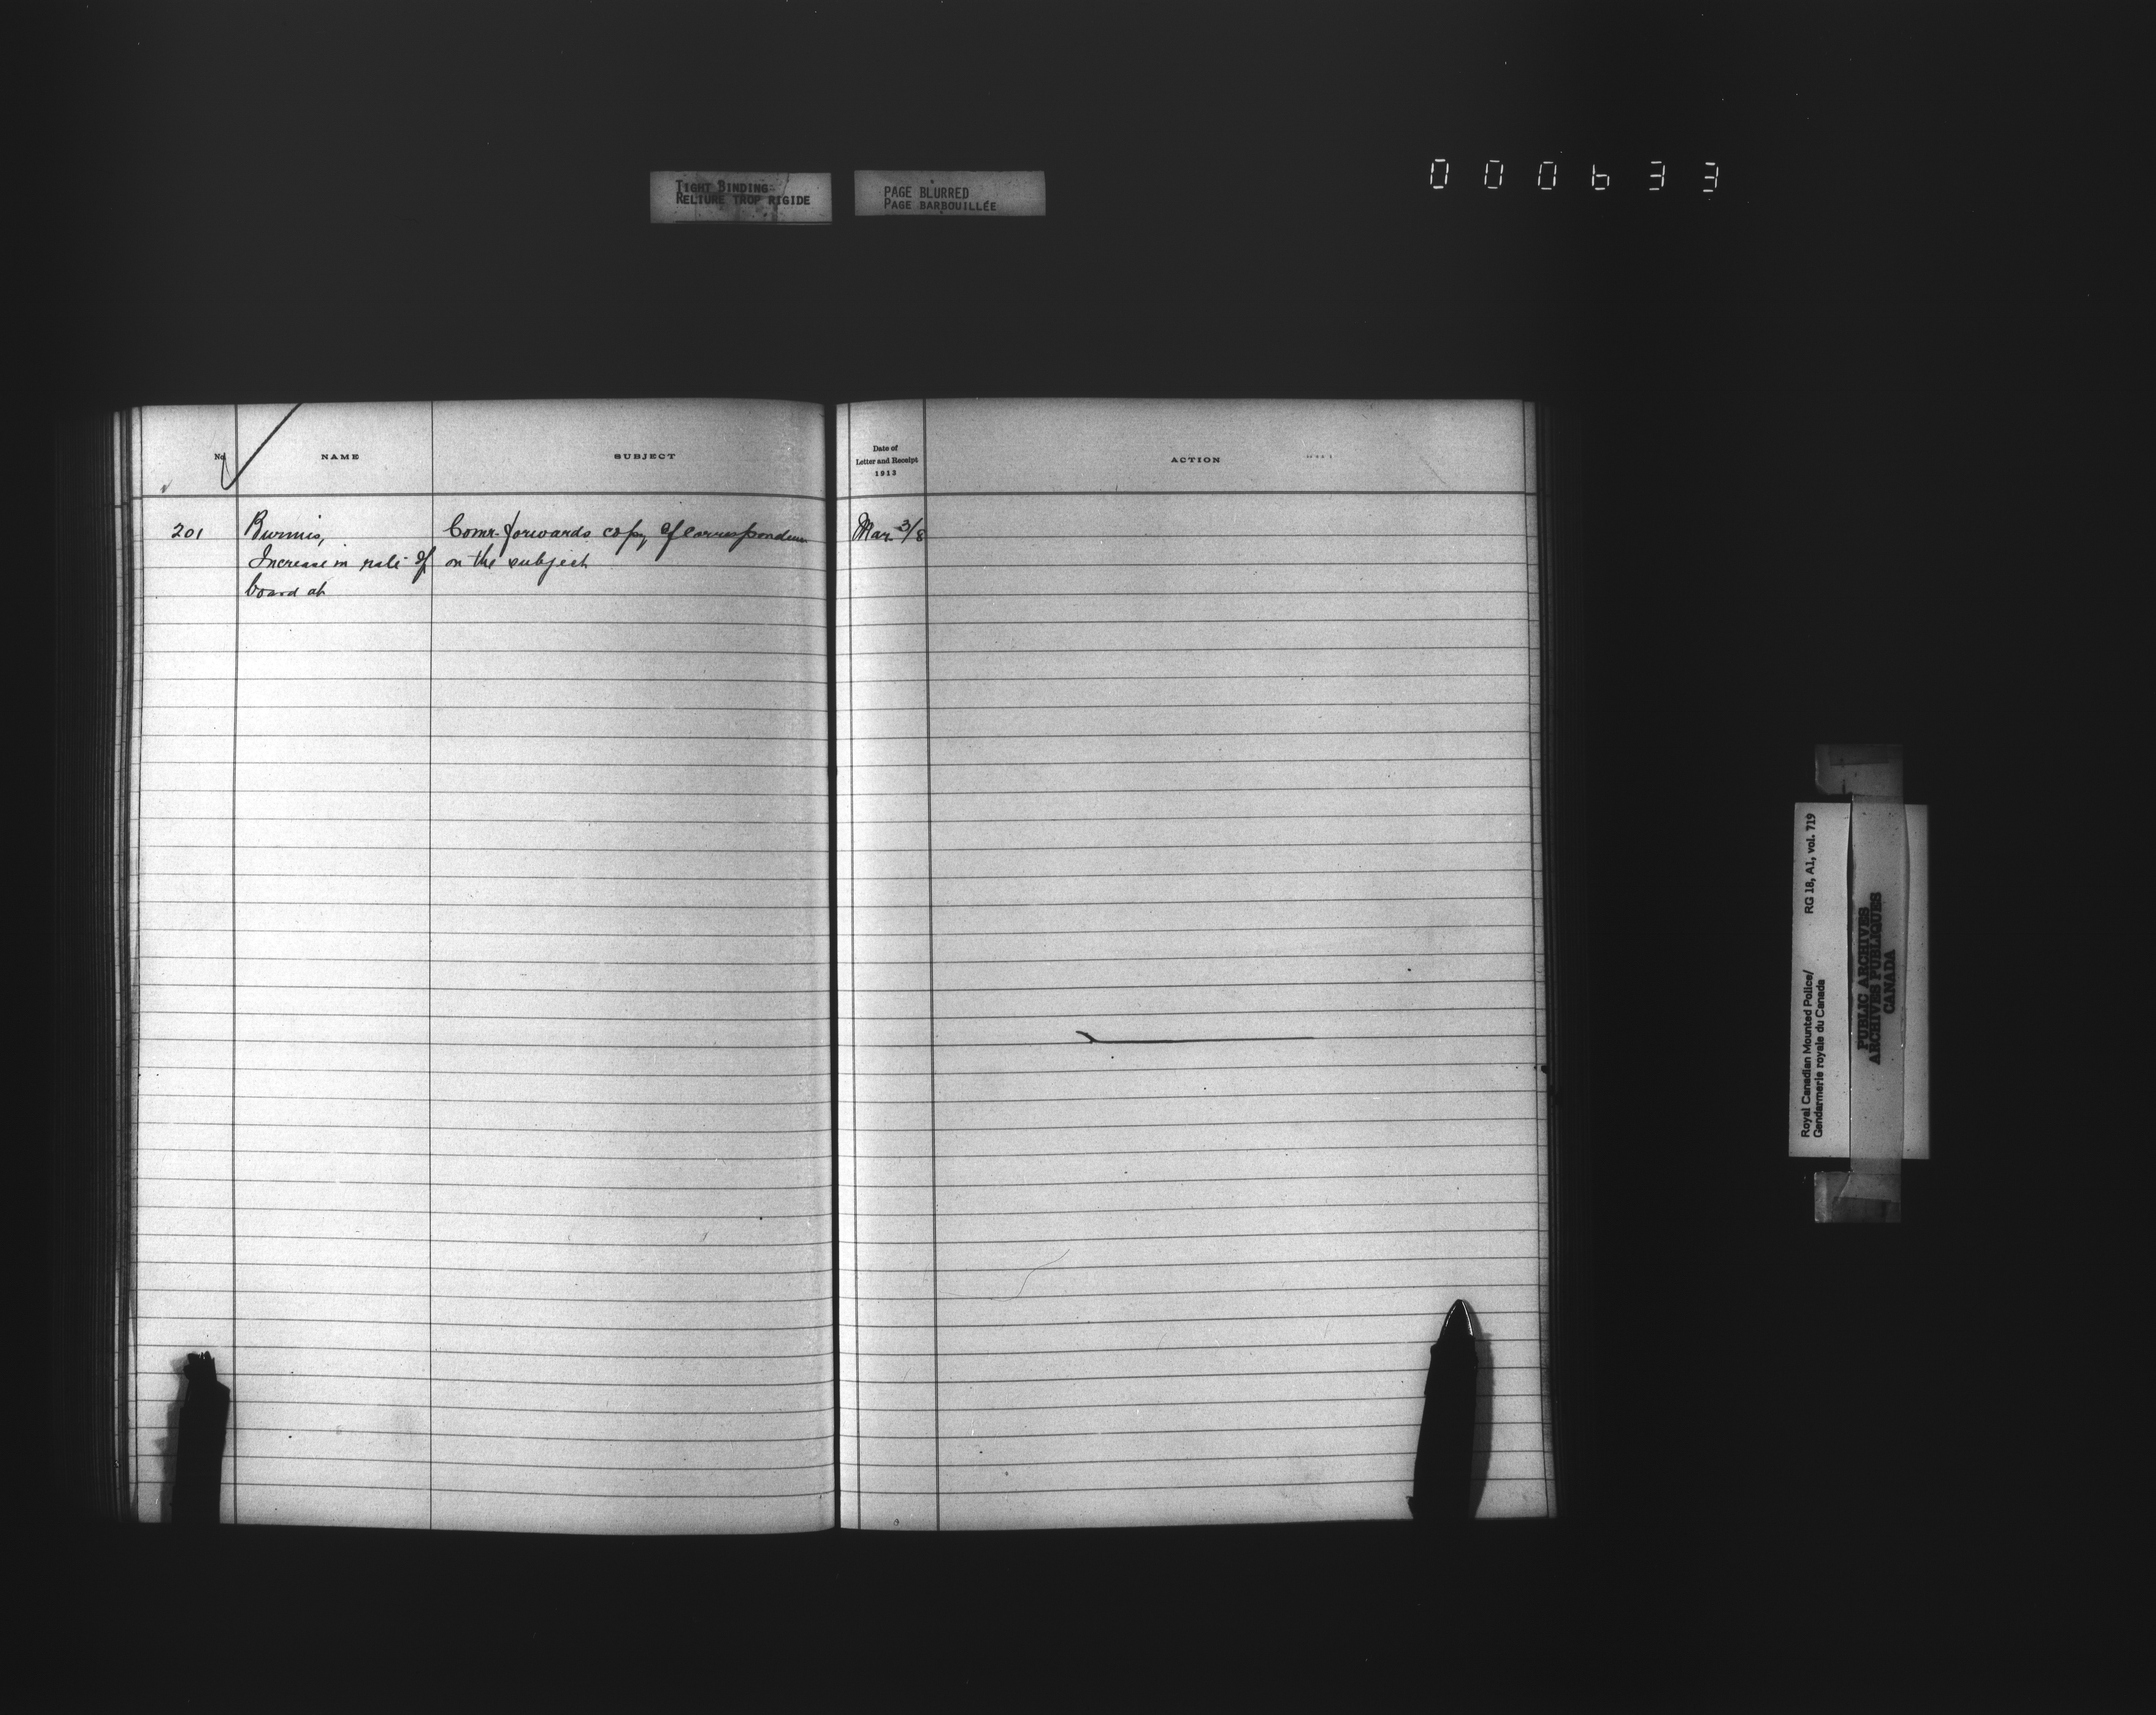 TIGHT BINDING
RELIURE TROP RIGIDE
PAGE BLURRED
PAGE BARBOUILLÉE
000633
No.
NAME
SUBJECT
Date of
Letter and Receipt
1913
ACTION
201 Burmis, Comr. forwards copy of correspondence Mar 3/8
Increase in rate of on the subject
board at
Royal Canadian Mounted Police/ RG 18, A1, vol. 719
Gendarmerie royale du Canada
PUBLIC ARCHIVES
ARCHIVES PUBLIQUES
CANADA